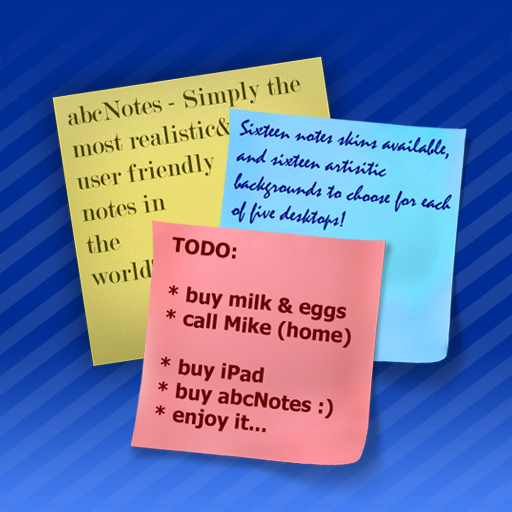 abcNotes - Simply the
most realistic&
user friendly
notes in
the
world
Sixteen notes skins available,
and sixteen artisitic
backgrounds to choose for each
of five desktops!
TODO:
* buy milk & eggs
* call Mike (home)
* buy iPad
* buy abcNotes :)
* enjoy it...